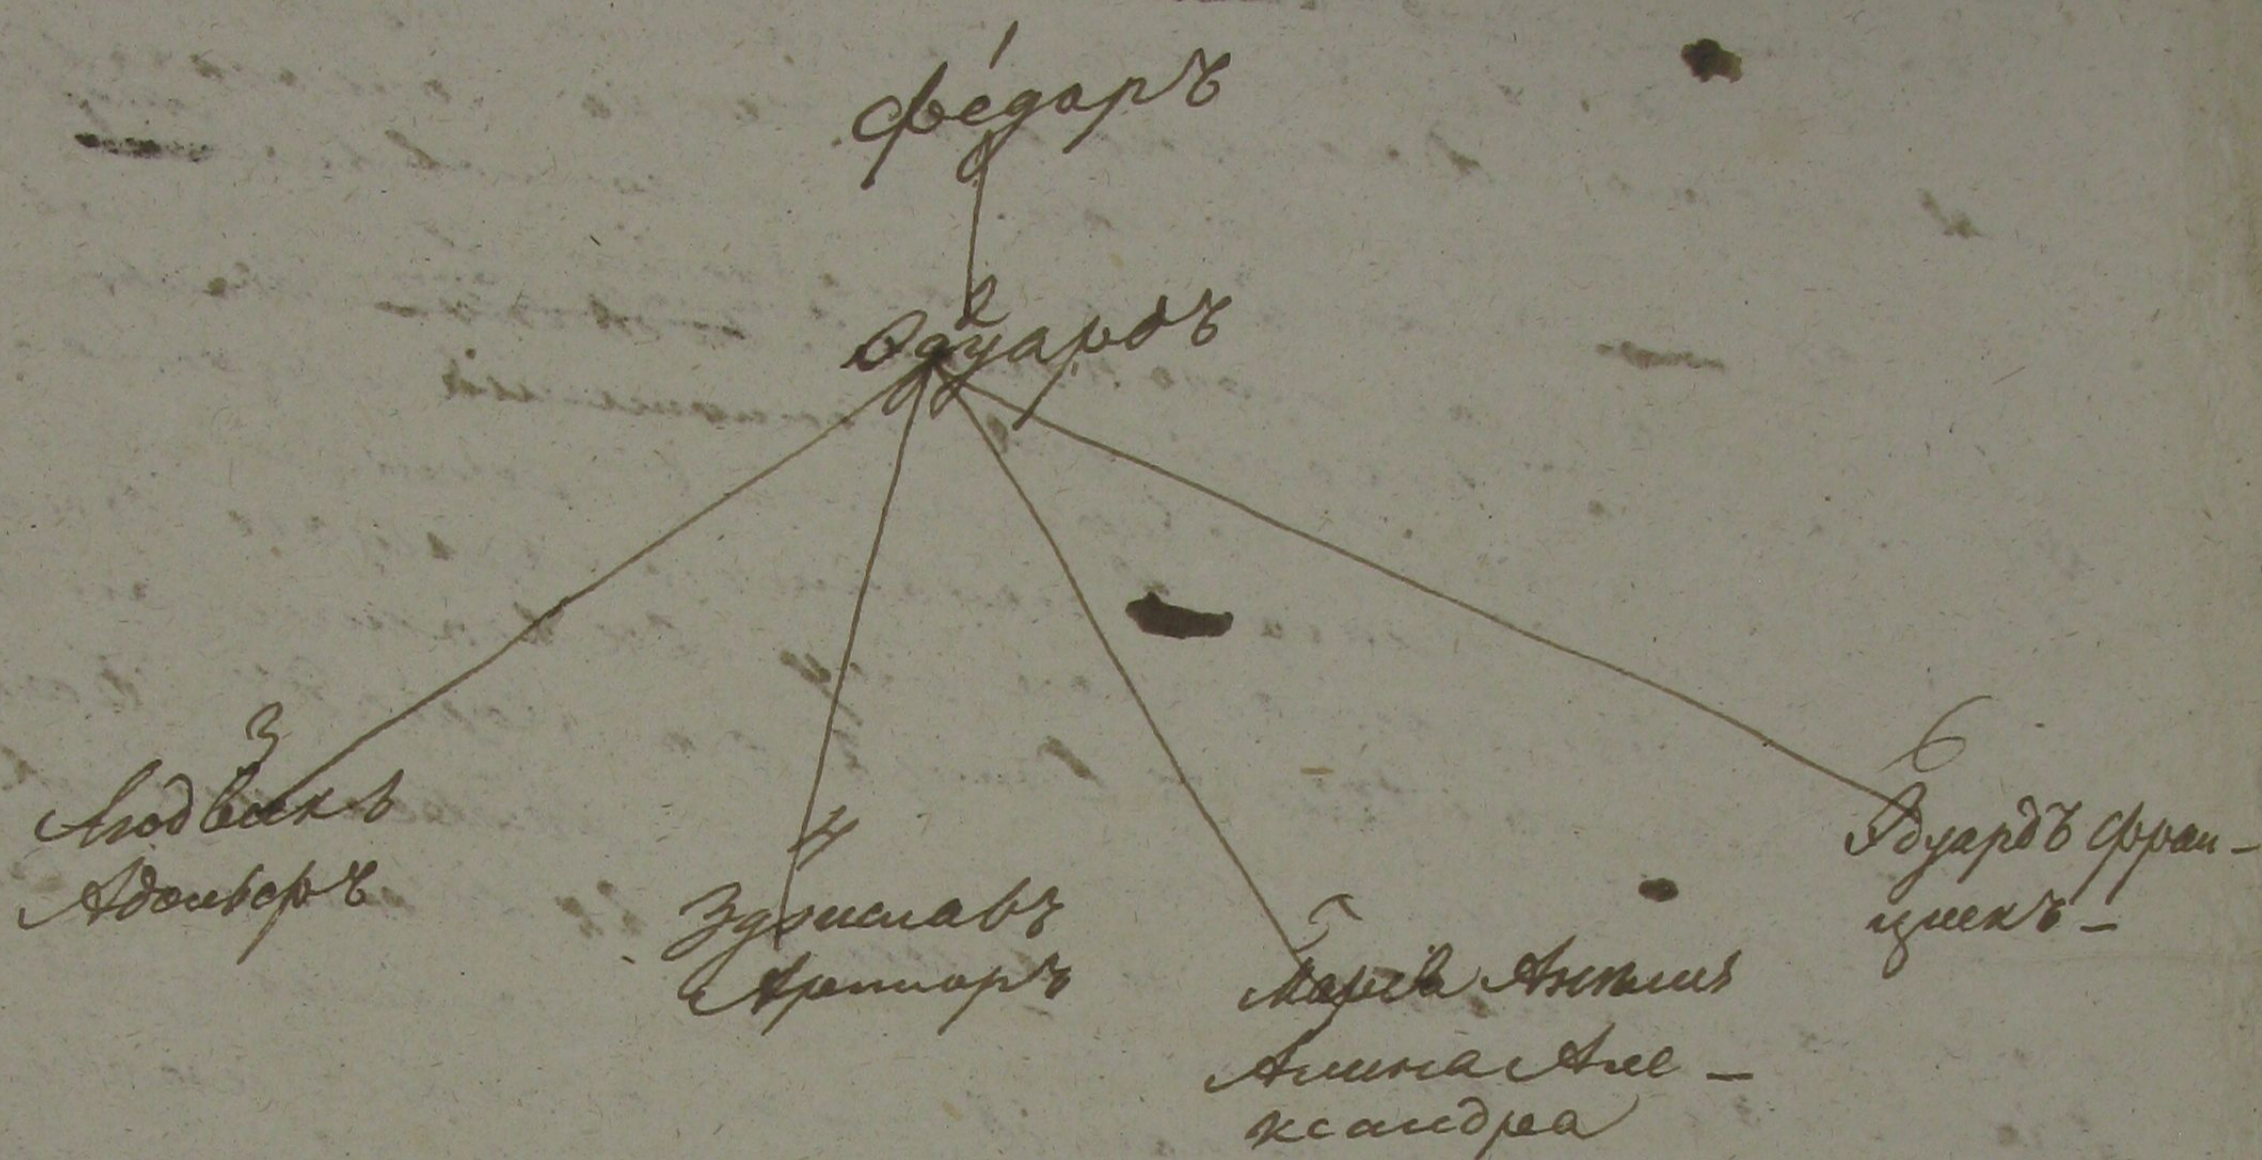 1
Федаръ
2
Эдуардъ
3
Людвикъ
Адольфъ
4
Здзиславъ
Артюръ
5
Марія
Алина Але-
ксандра
6
Эдуардъ Фран-
цишекъ-